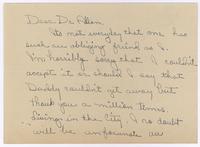 Dear Dr Allen
Its not everyday that one has
such an obliging friend as I.
I'm horribly sorry that I couldn't
accept it or should I say that
Daddy couldn't get away but
thank you a million times.
Living in the City, I no doubt
will be unfortunate as